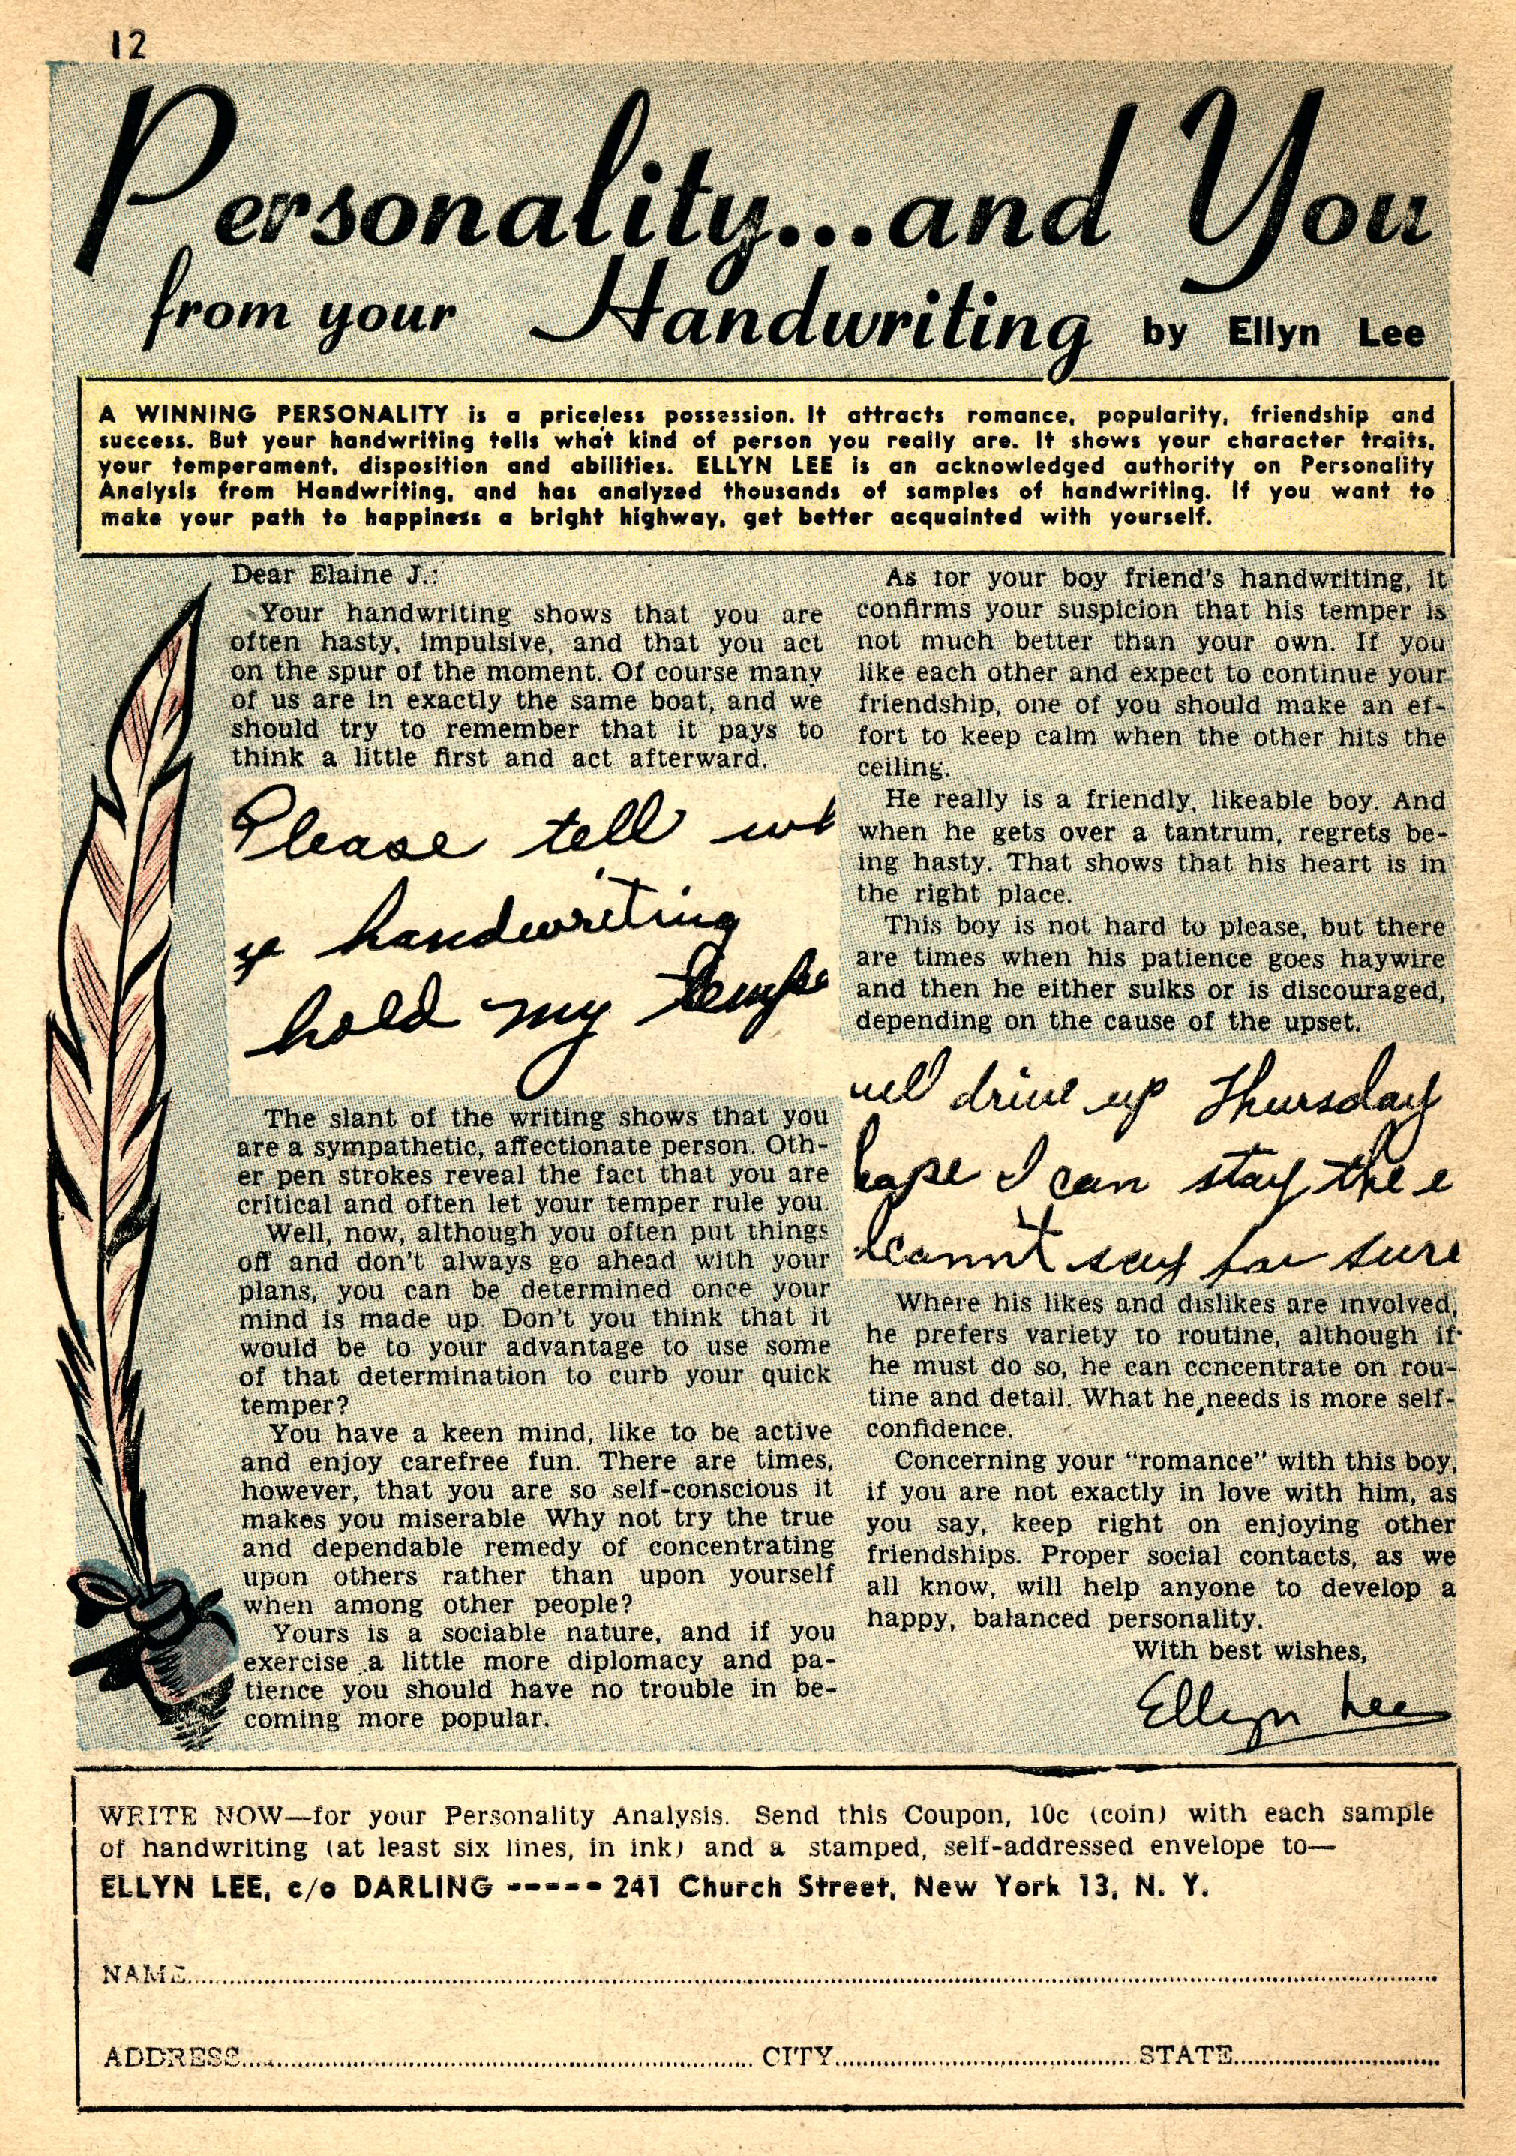 12
Personality...and You
from your Handwriting by Ellyn Lee
A WINNING PERSONALITY is a priceless possession. It attracts romance, popularity, friendship and
success. But your handwriting tells what kind of person you really are. It shows your character traits,
your temperament, disposition and abilities. ELLYN LEE is an acknowledged authority on Personality
Analysis from Handwriting, and has analyzed thousands of samples of handwriting. If you want to
make your path to happiness a bright highway, get better acquainted with yourself.
Dear Elaine J.:
Your handwriting shows that you are
often hasty, impulsive, and that you act
on the spur of the moment. Of course many
of us are in exactly the same boat, and we
should try to remember that it pays to
think a little first and act afterward.
Please tell
handwriting
hold my tempe
The slant of the writing shows that you
are a sympathetic, affectionate person. Oth-
er pen strokes reveal the fact that you are
critical and often let your temper rule you.
Well, now, although you often put things
off and don't always go ahead with your
plans, you can be determined once your
mind is made up. Don't you think that it
would be to your advantage to use some
of that determination to curb your quick
temper?
You have a keen mind, like to be active
and enjoy carefree fun. There are times,
however, that you are so self-conscious it
makes you miserable Why not try the true
and dependable remedy of concentrating
upon others rather than upon yourself
when among other people?
Yours is a sociable nature, and if you
exercise a little more diplomacy and pa-
tience you should have no trouble in be-
coming more popular.
As for your boy friend's handwriting, it
confirms your suspicion that his temper is
not much better than your own. If you
like each other and expect to continue your
friendship, one of you should make an ef-
fort to keep calm when the other hits the
ceiling.
He really is a friendly, likeable boy. And
when he gets over a tantrum, regrets be-
ing hasty. That shows that his heart is in
the right place.
This boy is not hard to please, but there
are times when his patience goes haywire
and then he either sulks or is discouraged,
depending on the cause of the upset.
drive up Thursday
hope I can stay the e
cannt say for sure
Where his likes and dislikes are involved,
he prefers variety to routine, although if
he must do so, he can concentrate on rou-
tine and detail. What he needs is more self-
confidence.
Concerning your "romance" with this boy,
if you are not exactly in love with him, as
you say, keep right on enjoying other
friendships. Proper social contacts, as we
all know, will help anyone to develop a
happy, balanced personality.
With best wishes,
Ellyn Lee
WRITE NOW—for your Personality Analysis. Send this Coupon, 10c (coin) with each sample
of handwriting (at least six lines, in ink) and a stamped, self-addressed envelope to—
ELLYN LEE, c/o DARLING ----- 241 Church Street, New York 13, N. Y.
NAME
ADDRESS CITY STATE